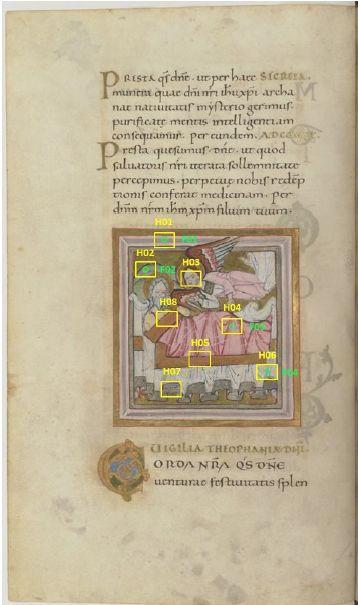 PRISTA qs dne. ut per haec SECRETA.
munera quae dni nri ihu xpi archa
nae nativitatis mysterio gerimus.
purificatae mentis intelligentiam
consequamur. per eundem. AD COM
Presta quesumus dne. ut quod
salvatoris nri iterata sollemnitate
percepimus. perpetuae nobis redep
tionis conferat medicinam. Per
dnm nrm ihm xpm filium tuum.
H01
F01
H02
F02
H03
H08
H04
F03
H05
H06
F04
H07
VIGILIA THEOPHANIA DNI.
CORDA NRA QS DNE
venturae festivitatis splen